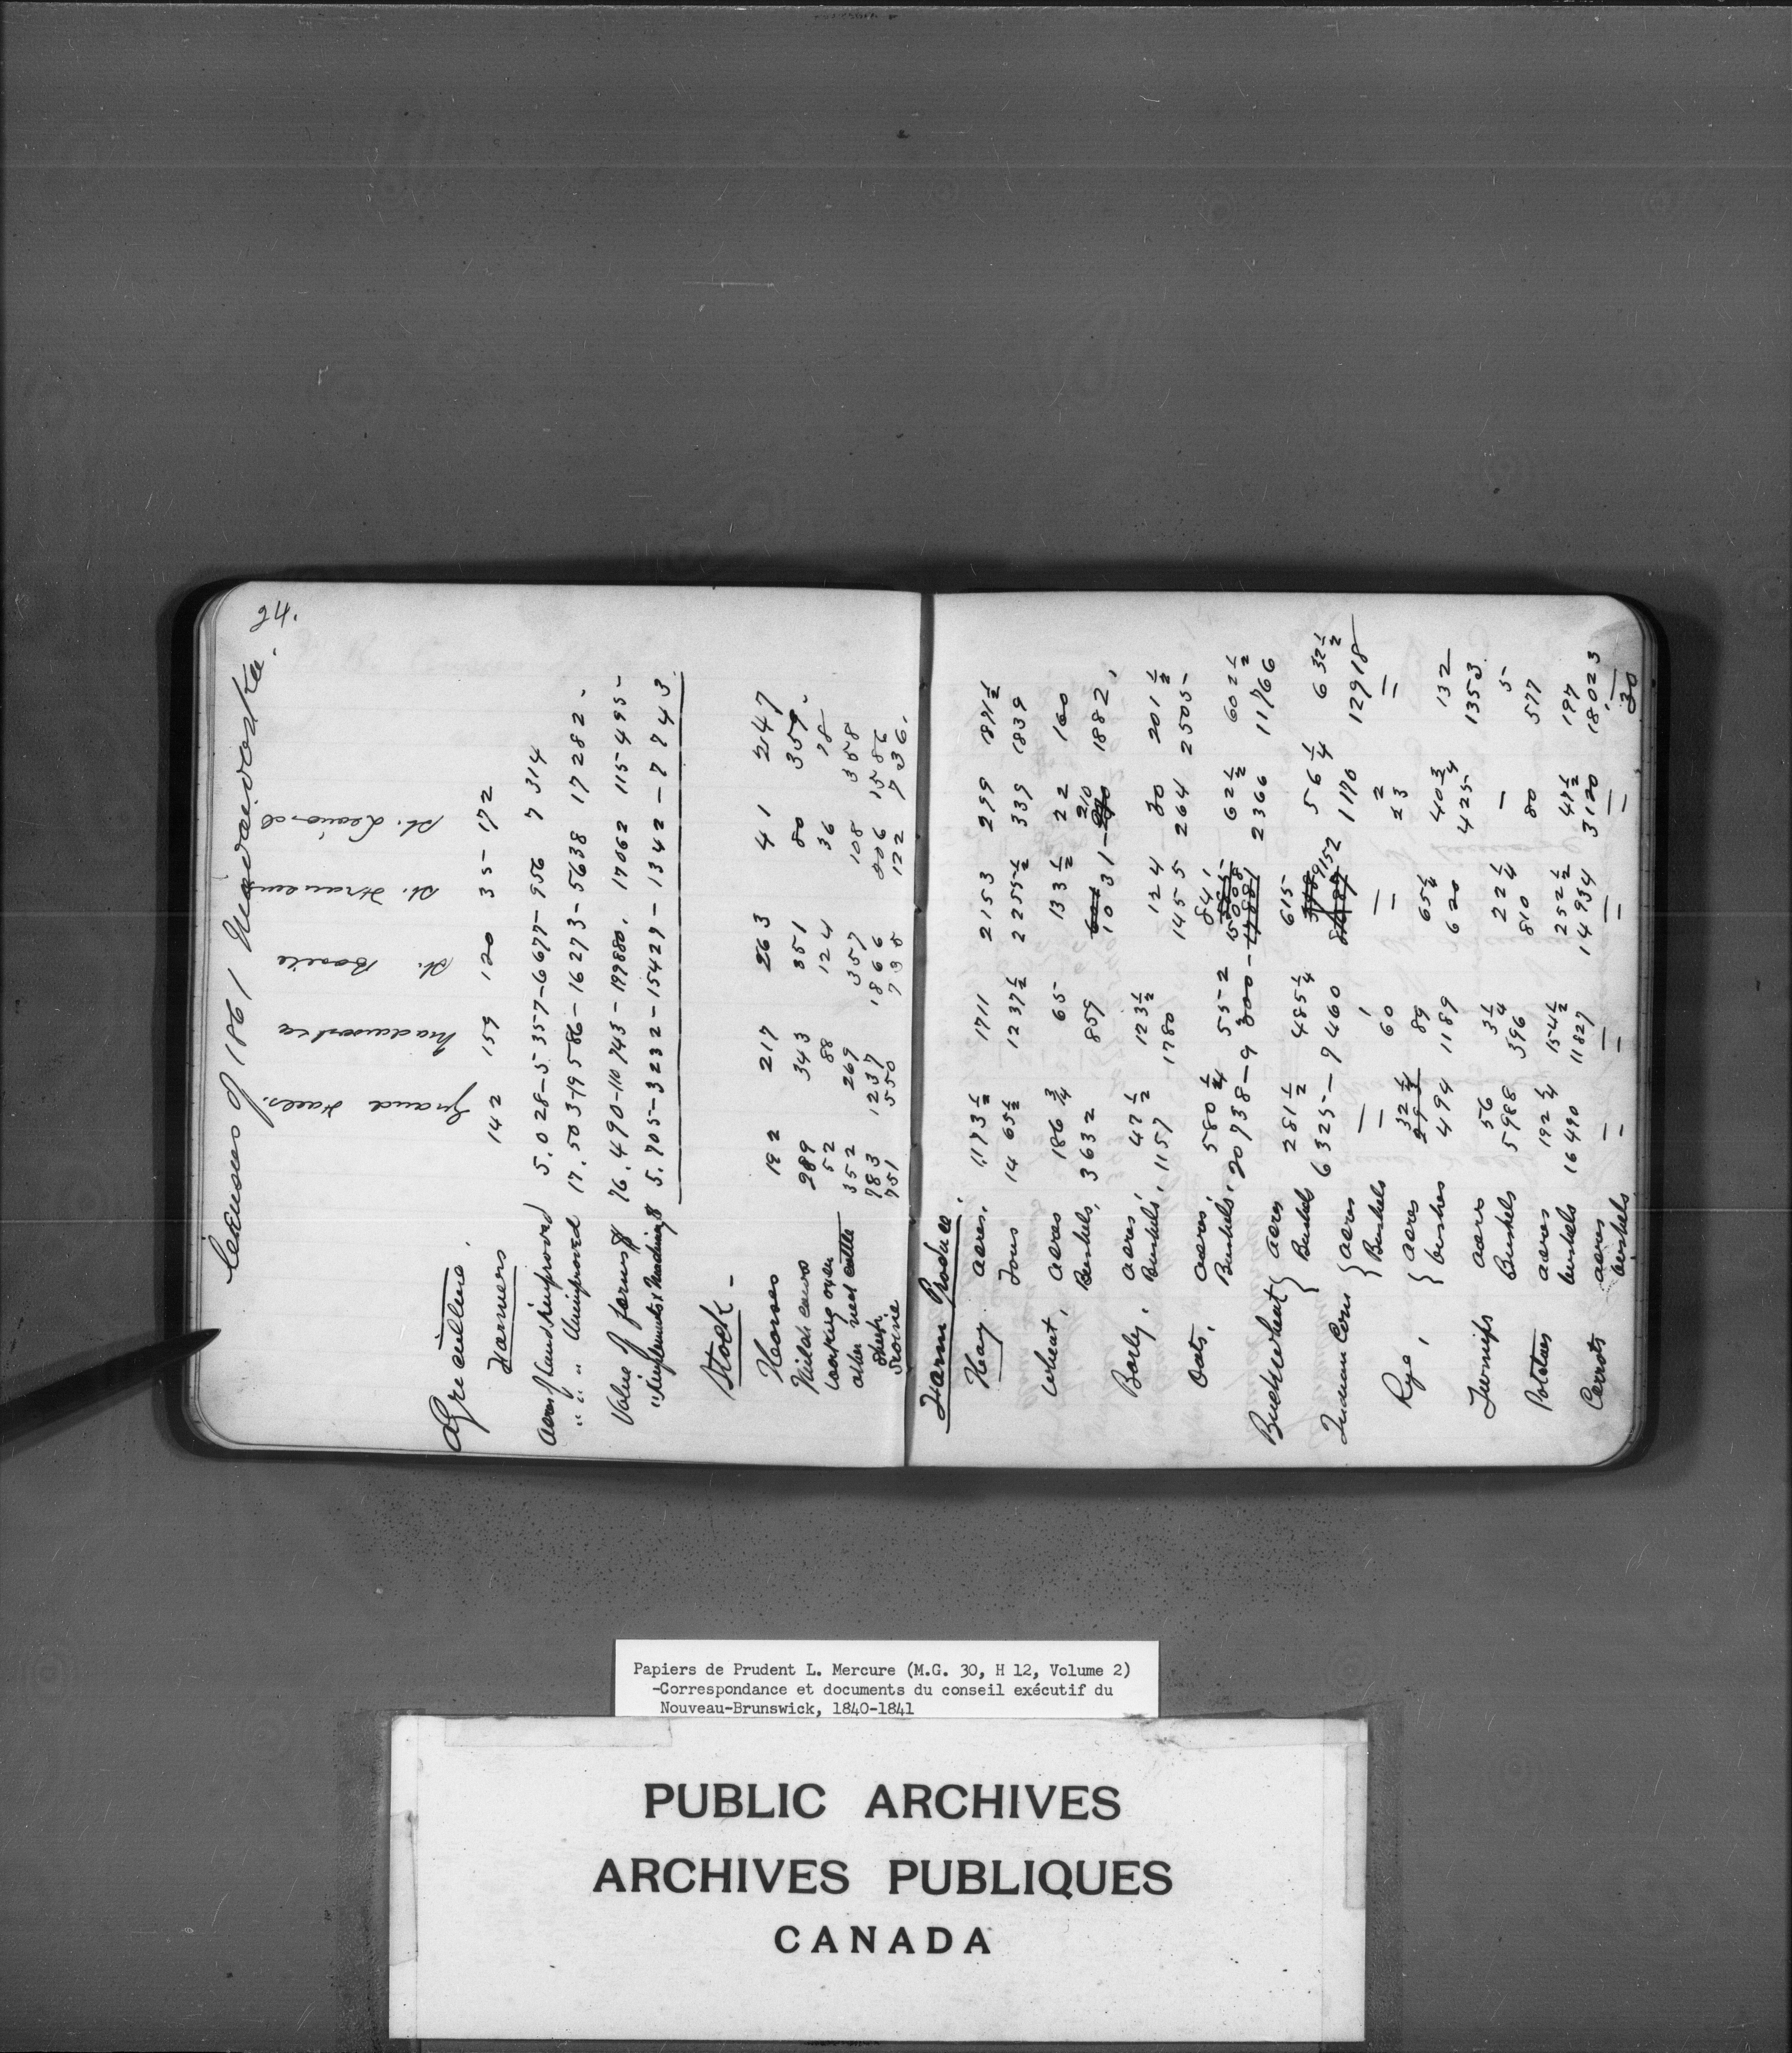 24.
Census of 1861 Madawaska.
Grand Falls. Madawaska St. Basile St. Francis St. Leonard
Agriculture.
Farmers 142 159 120 35- 172
Acres of Land Improved 5.028-5357-6677-956 7314
" " " Unimproved 17.503-19586-16273-5638 17282-
Value of farms $ 76.490-110743-197880. 17062 115495-
" Implements & Machinery $ 5.705-3232-15427-1342-7743
Stock-
Horses 192 217 263 41 247
Milch cows 289 343 351 80 359-
Working oxen 52 88 124 36 78
Other neat cattle 352 269 357 108 358
Sheep 783 1237 1866 206 1586
Swine 751 550 738 122 736.
Farm Produce.
Hay acres. 1,173½ 1711 2153 299 1871½
Tons 1465½ 1237½ 2255½ 339 1839
Wheat, acres 186¾ 65- 133½ 22 160
Bushels, 3632 859 1031- 210 1882,
Barly, acres 47½ 123½ 124 30 201½
Bushels, 1157 1780 1455 264 2505-
Oats, acres 580¼ 552 841 62½ 602½
Bushels, 20738- 15008 2366 11766
Buckwheat { acres 281½ 485¼ 615- 56¼ 632½
Bushels 6325- 9460 9152 1170 12918
Indian Corn { acres — 1 — 2 =
Bushels — 60 — 23
Rye, { acres 32¼ 89 65½ 40¾ 132
bushes 494 1189 620 425- 1353
Turnips acres 56 3¼ 22¼ — 5-
Bushels 5988 396 810 80 577
Potatoes acres 192¼ 154½ 252½ 47½ 197
bushels 16490 11827 14934 3120 18023
Carrots acres — — — — —
bushels - - - - 30
Papiers de Prudent L. Mercure (M.G. 30, H 12, Volume 2)
-Correspondance et documents du conseil exécutif du
Nouveau-Brunswick, 1840-1841
PUBLIC ARCHIVES
ARCHIVES PUBLIQUES
CANADA